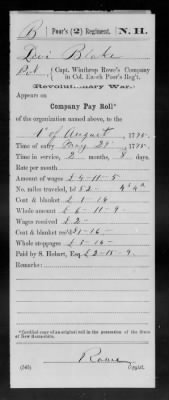 B | Poor's (2) Regiment. | N. H.
Levi Blake
Pvt, { Capt. Winthrop Rowe's Company
in Col. Enoch Poor's Reg't.
Revolutionary War.
Appears on
Company Pay Roll*
of the organization named above, to the
1st of August, 1775.
Time of entry May 29, 1775.
Time in service, 2 months, 8 days.
Rate per month
Amount of wages £4-11-5
No. miles traveled, 52 4s 4d
Coat & blanket £1-16
Whole amount £6-11-9
Wages received £2-
Coat & blanket rec'd £1-16-
Whole stoppages £3-16-
Paid by S. Hobart, Esq. £2-15-9
Remarks:
*Certified copy of an original roll in the possession of the State of New Hampshire.
Rowe
(545) Copyist.